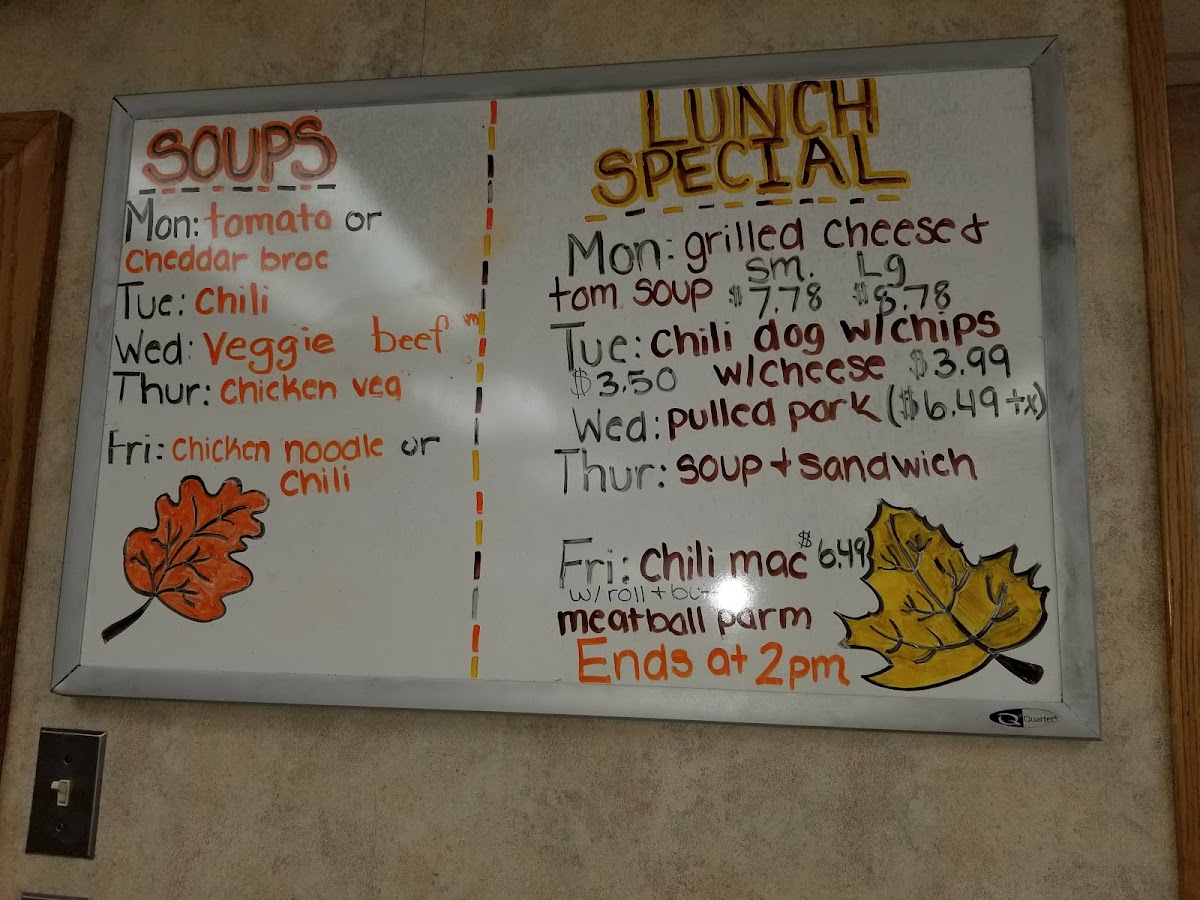 SOUPS
Mon: tomato or
cheddar broc
Tue: Chili
Wed: Veggie beef
Thur: chicken veg
Fri: chicken noodle or
chili
LUNCH
SPECIAL
Mon: grilled cheese &
sm. Lg
tom soup $7.78 $8.78
Tue: chili dog w/chips
$3.50 w/cheese $3.99
Wed: pulled pork ($6.49 +x)
Thur: soup + sandwich
Fri: chili mac $6.49
w/ roll +
meatball parm
Ends at 2pm
Q Quartet